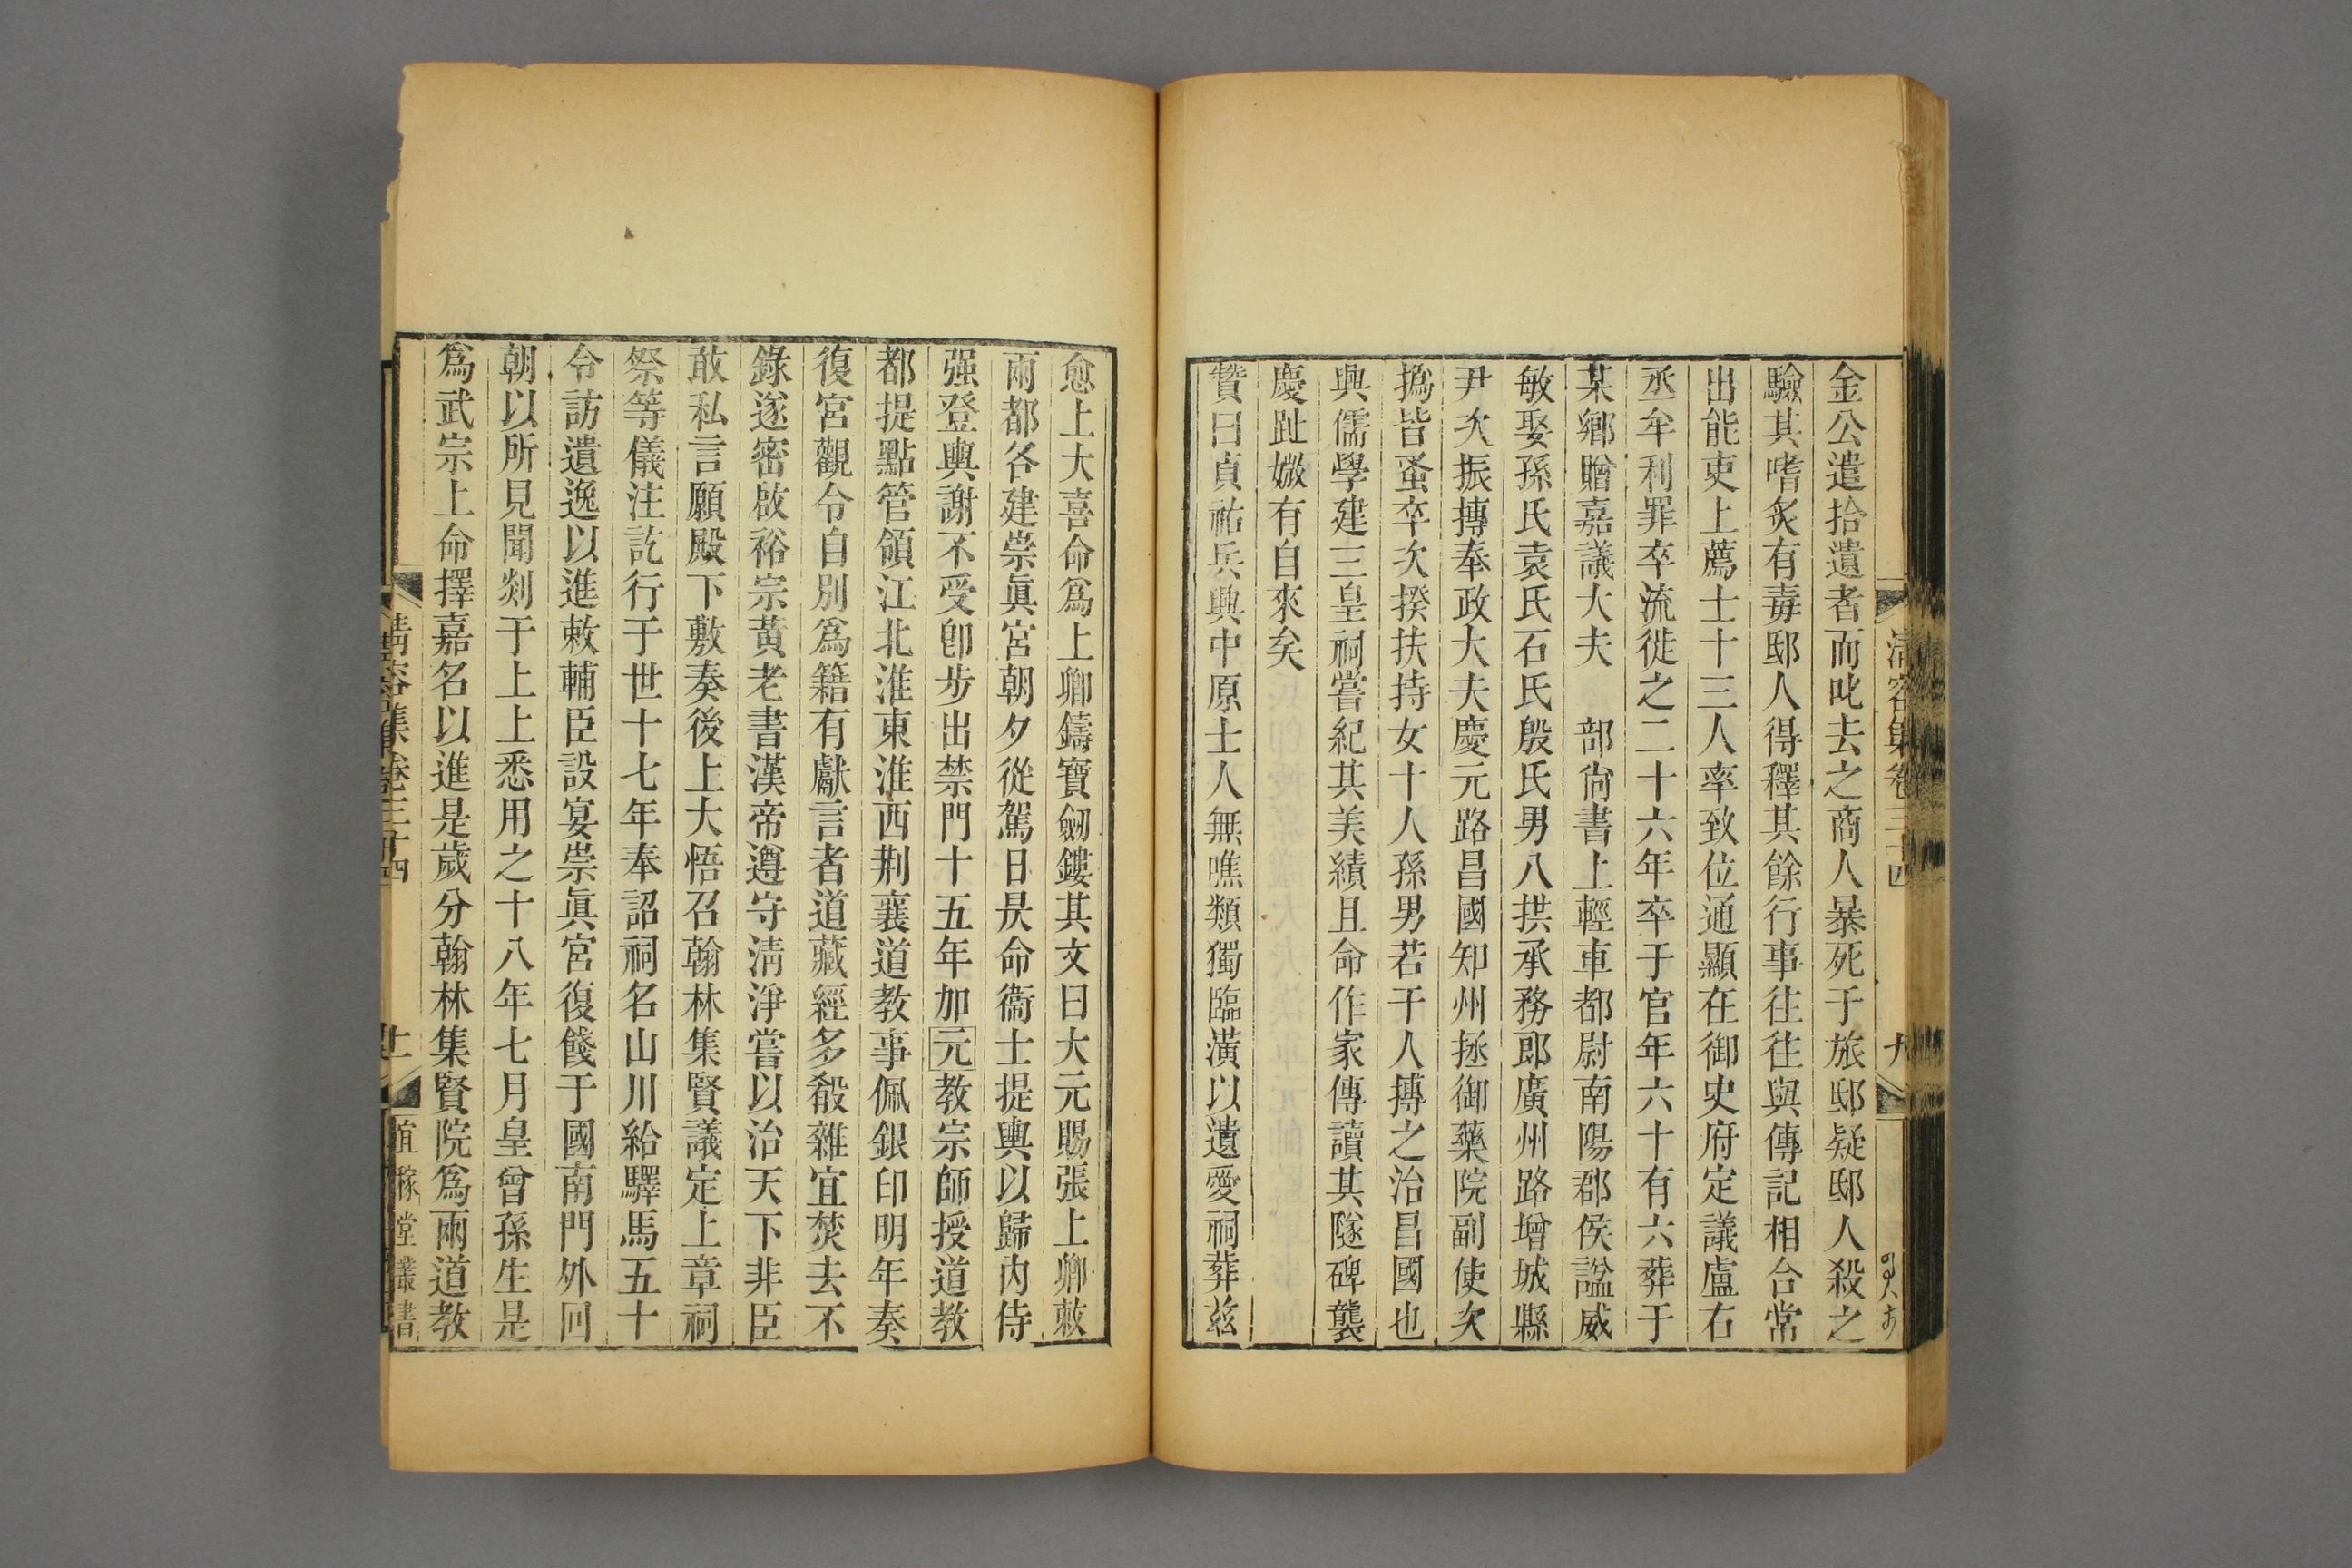 金公遣拾遺者而叱去之商人暴死于旅邸疑邸人殺之
驗其嗜炙有毒邸人得釋其餘行事往往與傳記相合常
出能吏上薦士十三人率致位通顯在御史府定議盧右
丞牟利罪卒流徙之二十六年卒于官年六十有六葬于
某鄉贈嘉議大夫　部尙書上輕車都尉南陽郡侯諡威
敏娶孫氏袁氏石氏殷氏男八拱承務郎廣州路增城縣
尹次振摶奉政大夫慶元路昌國知州拯御藥院副使次
撝皆蚤卒次揆扶持女十人孫男若干人摶之治昌國也
興儒學建三皇祠嘗紀其美績且命作家傳讀其隧碑龔
慶趾媺有自來矣
贊曰貞祐兵興中原士人無噍類獨臨潢以遺愛祠葬玆
愈上大喜命爲上卿鑄寶劒鏤其文曰大元賜張上卿敕
兩都各建崇眞宮朝夕從駕日昃命衞士提輿以歸內侍
强登輿謝不受卽步出禁門十五年加元教宗師授道教
都提點管領江北淮東淮西荆襄道教事佩銀印明年奏
復宮觀令自別爲籍有獻言者道藏經多殽雜宜焚去不
錄遂密啟裕宗黃老書漢帝遵守淸淨嘗以治天下非臣
敢私言願殿下敷奏後上大悟召翰林集賢議定上章祠
祭等儀注訖行于世十七年奉詔祠名山川給驛馬五十
令訪遺逸以進敕輔臣設宴崇眞宮復餞于國南門外囘
朝以所見聞剡于上上悉用之十八年七月皇曾孫生是
爲武宗上命擇嘉名以進是歲分翰林集賢院爲兩道教
淸容集卷三十四
宜稼堂叢書